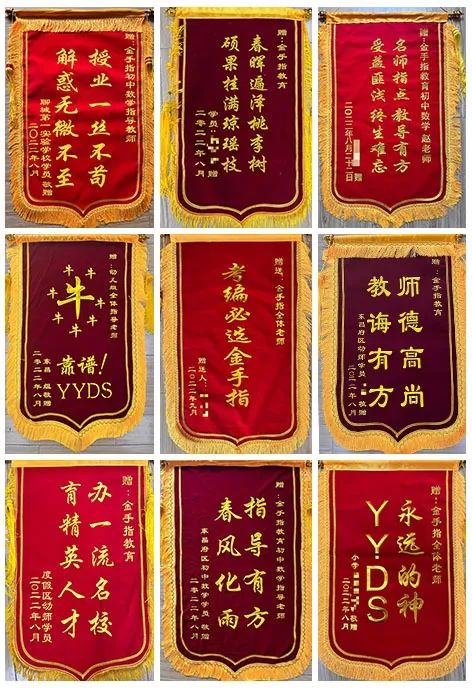 赠:金手指初中数学指导教师
授业一丝不苟
解惑无微不至
聊城第一实验学校学员敬赠
二〇二二年八月
赠:金手指教育
春晖遍泽桃李树
硕果挂满琼瑶枝
学员:
二〇二二年八月
赠:金手指教育初中数学 赵老师
名师指点教导有方
受益匪浅终生难忘
二〇二二年八月二十二日 赠
赠:幼儿组全体指导老师
牛
牛
牛
牛
牛
牛
牛
牛
靠谱!
YYDS
东昌 组敬赠
二零二二年八月
赠送:金手指全体老师
考编必选金手指
赠送人:
二〇二二年九月
赠:金手指教育
师德高尚
教诲有方
东昌府区幼师学员 敬赠
二〇二二年八月
赠:金手指教育
办一流名校
育精英人才
度假区幼师学员
二〇二二年八月
赠:金手指教育初中数学指导老师
指导有方
春风化雨
东昌府区初中数学学员 敬赠
二零二二年八月
赠:金手指全体老师
永远的神
YYDS
小学 敬赠
二〇二二年八月